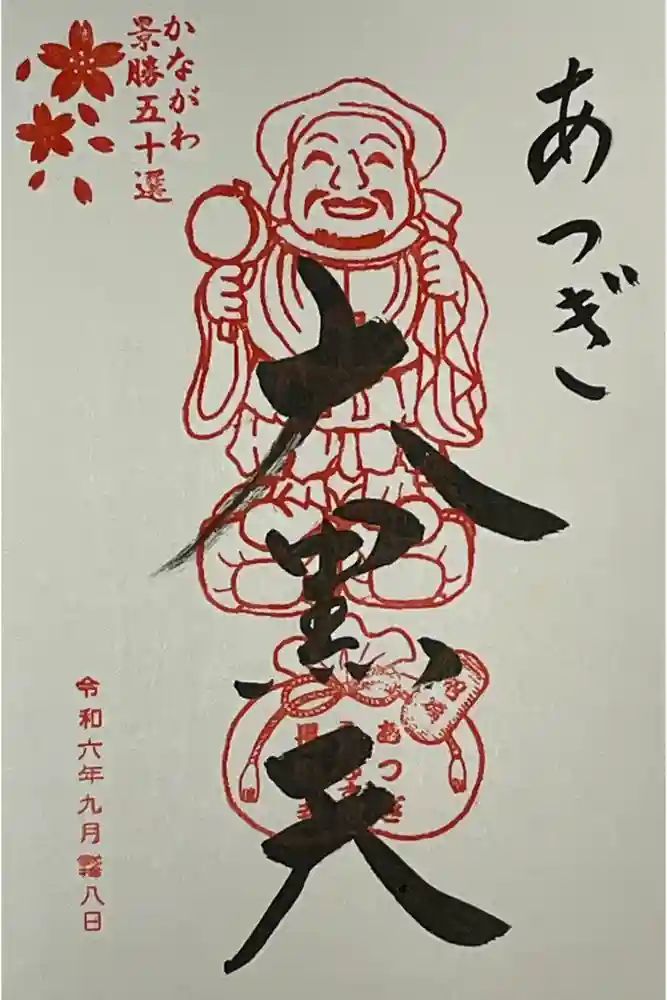 あつぎ
大黒天
かながわ
景勝五十選
令和六年九月八日